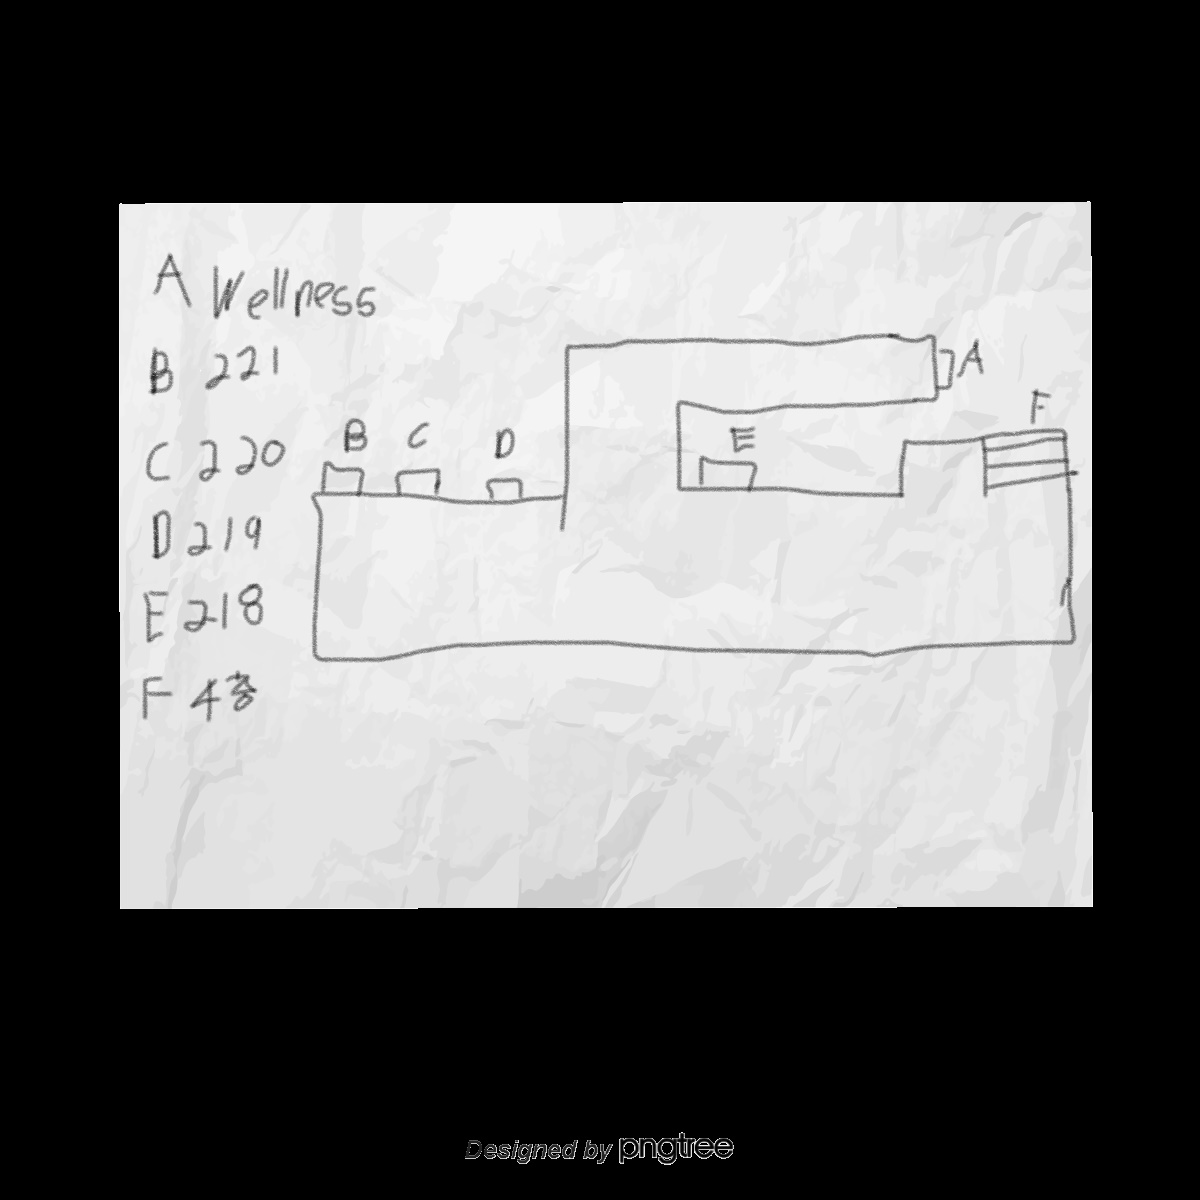 A Wellness
B 221
C 220
D 219
E 218
F 4층
A
F
B C D E
Designed by pngtree